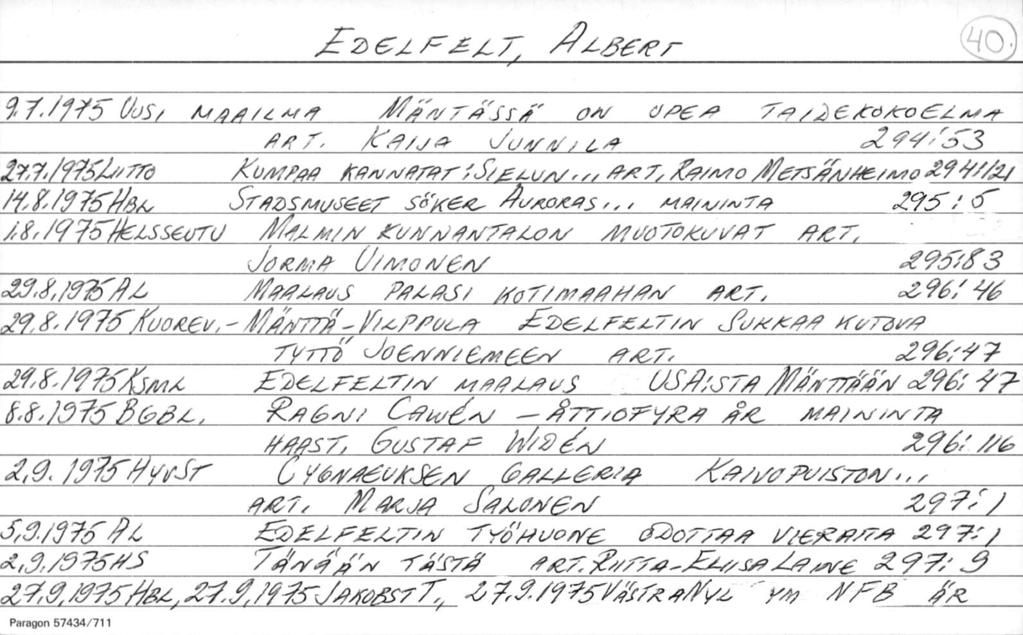 EDELFELT, ALBERT
40.
9.7.1975 UUSI MAAILMA MÄNTÄSSÄ ON UPEA TAIDEKOKOELMA
ART. KAIJA JUNNILA 294:53
27.7.1975 LIITTO KUMPAA KANNATAT: SIELUN... ART. RAIMO METSÄNHEIMO 294:121
14.8.1975 HBL STADSMUSEET SÖKER AURORAS... MAININTA 295:5
1.8.1975 HELSSEUTU MALMIN KUNNANTALON MUOTOKUVAT ART.
JORMA UIMONEN 295:83
29.8.1975 AL MAALAUS PALASI KOTIMAAHAN ART. 296:46
29.8.1975 KUOREV.-MÄNTTÄ-VILPPULA EDELFELTIN SUKKAA KUTOVA
TYTTÖ JOENNIEMEEN ART. 296:47
29.8.1975 KSML EDELFELTIN MAALAUS USA:STA MÄNTTÄÄN 296:47
8.8.1975 BGBL. RAGNI CAWÉN - ÅTTIOFYRA ÅR MAININTA
HAAST. GUSTAF WIDÉN 296:116
2.9.1975 HYVST CYGNAEUKSEN GALLERIA KAIVOPUISTON...
ART. MARJA SALONEN 297:1
5.9.1975 AL EDELFELTIN TYÖHUONE ODOTTAA VIERAITA 297:1
2.9.1975 HS TÄNÄÄN TÄSTÄ ART. RIITTA-ELIISA LAINE 297:9
27.9.1975 HBL, 27.9.1975 JAKOBST T., 27.9.1975 VÄSTRA NYL YM NFB ÄR
Paragon 57434/711